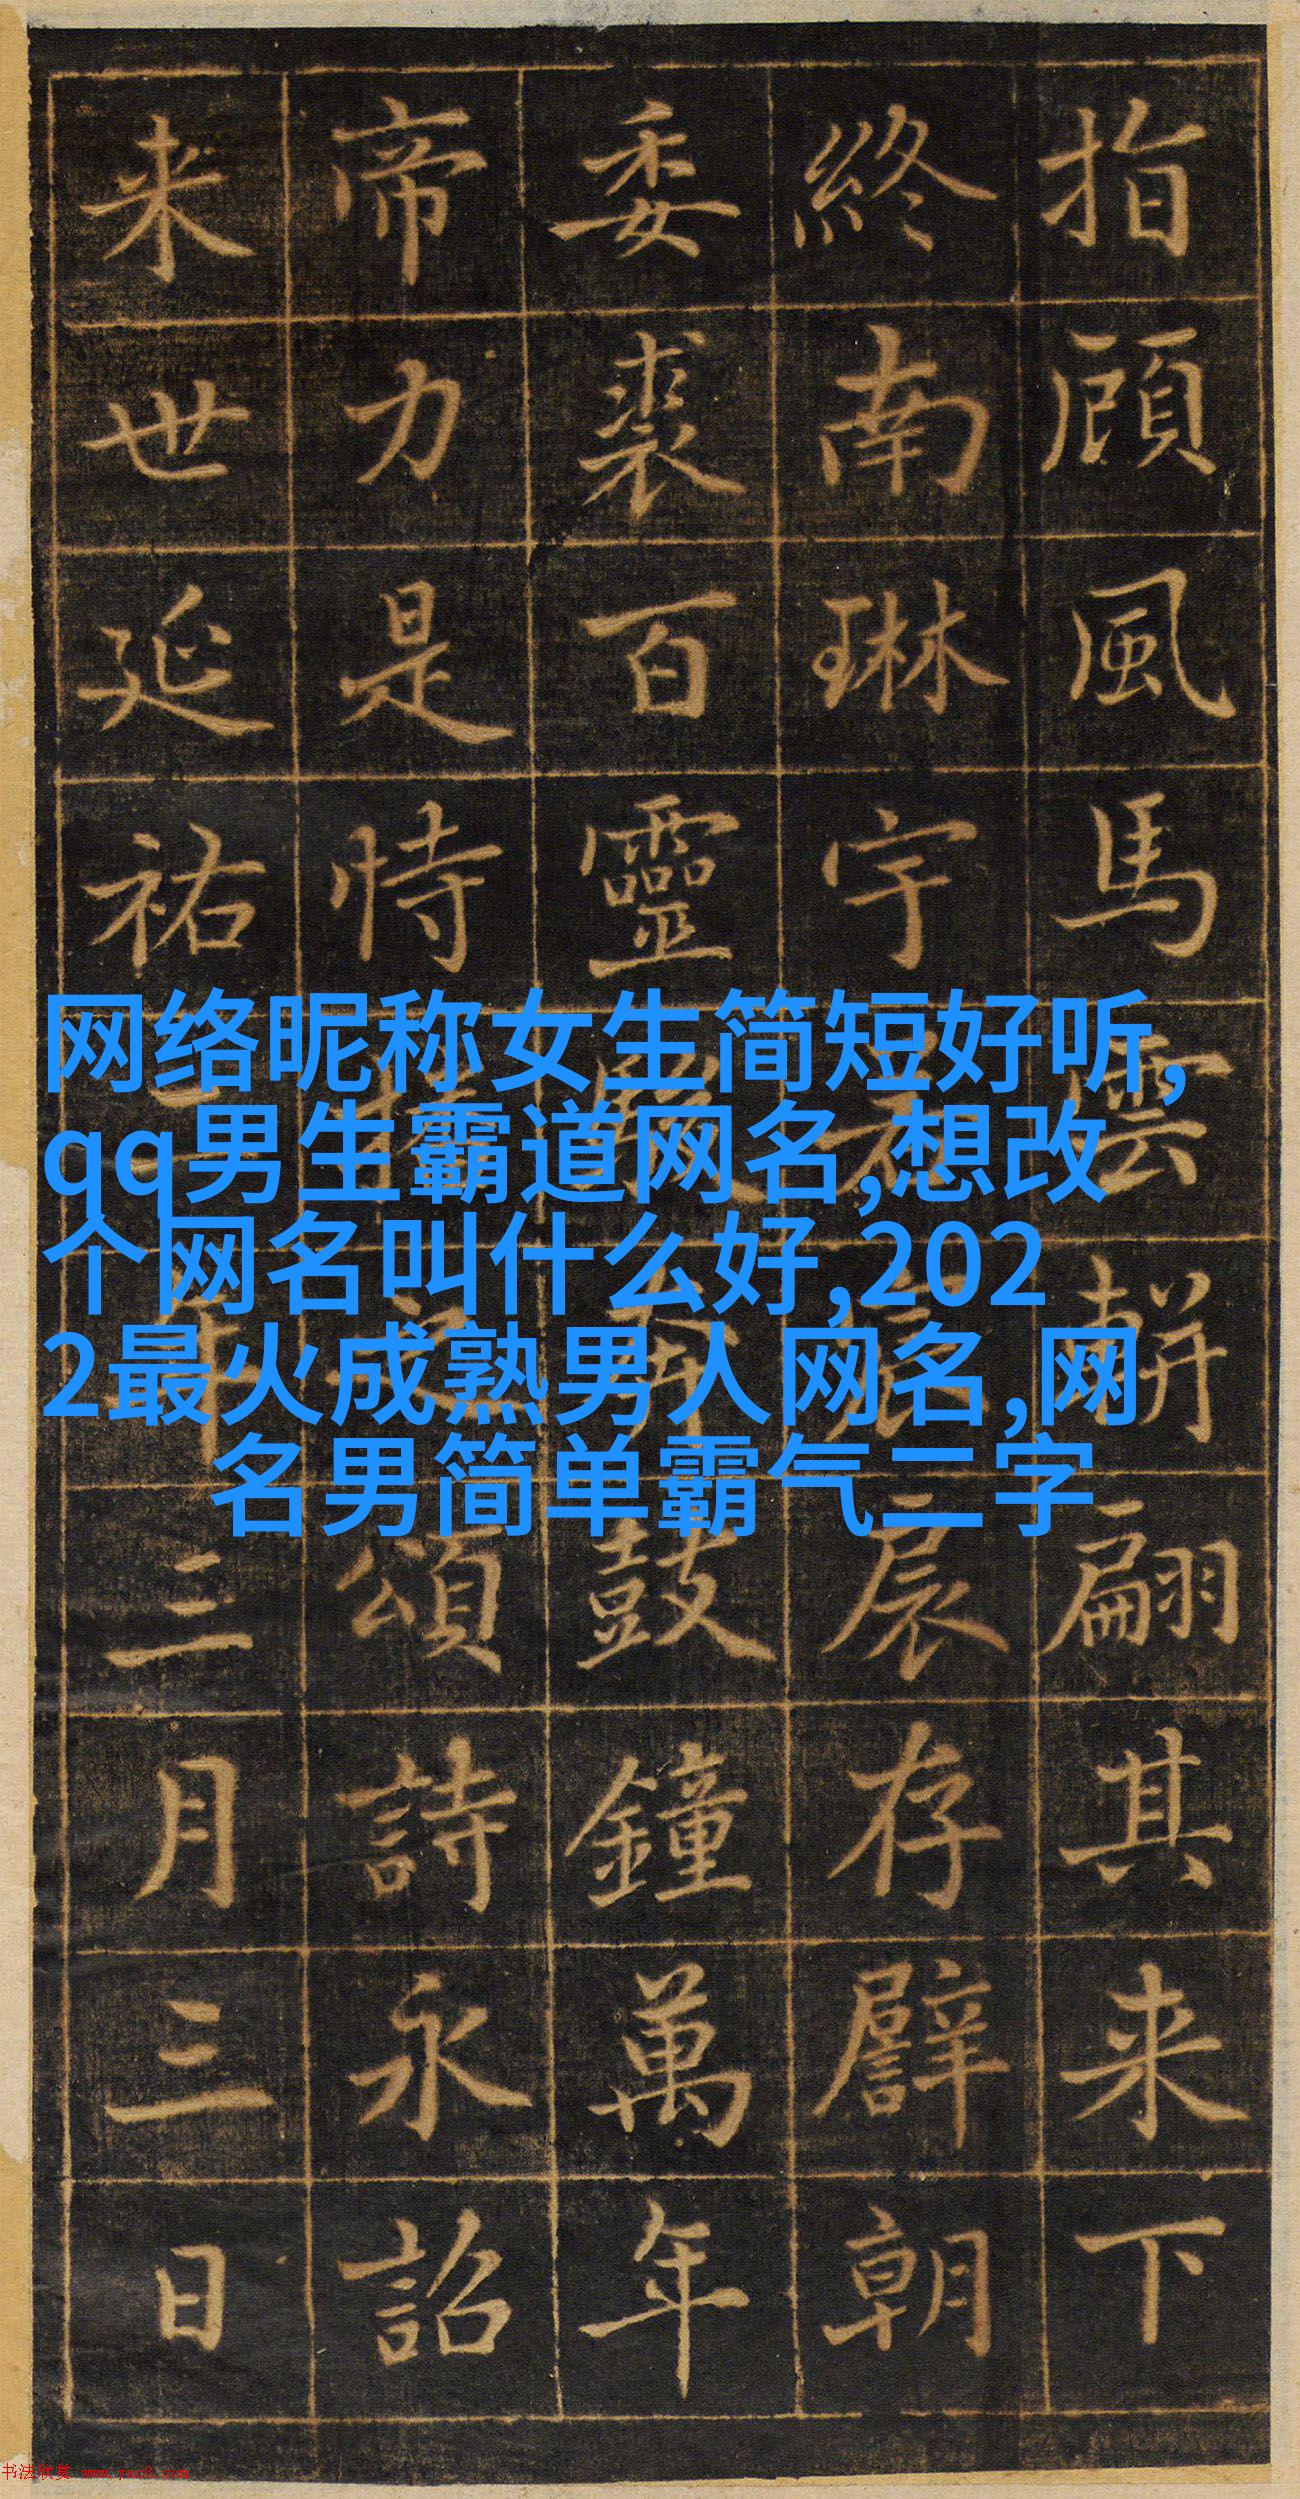 指顧風馬雲軿翩其来下
終南琳宇扆存譬朝
委裘百靈奔鼓鐘萬年
帝力是恃頌詩永詔
来世延祐年三月三日
网络昵称女生简短好听,
qq男生霸道网名,想改
个网名叫什么好,202
2最火成熟男人网名,网
名男简单霸气二字
书法欣赏 www.yac8.com